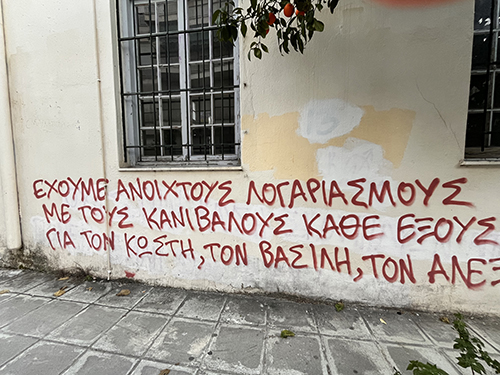 ΕΧΟΥΜΕ ΑΝΟΙΧΤΟΥΣ ΛΟΓΑΡΙΑΣΜΟΥΣ
ΜΕ ΤΟΥΣ ΚΑΝΙΒΑΛΟΥΣ ΚΑΘΕ ΕΞΟΥΣ
ΓΙΑ ΤΟΝ ΚΩΣΤΗ, ΤΟΝ ΒΑΣΙΛΗ, ΤΟΝ ΑΛΕΞ